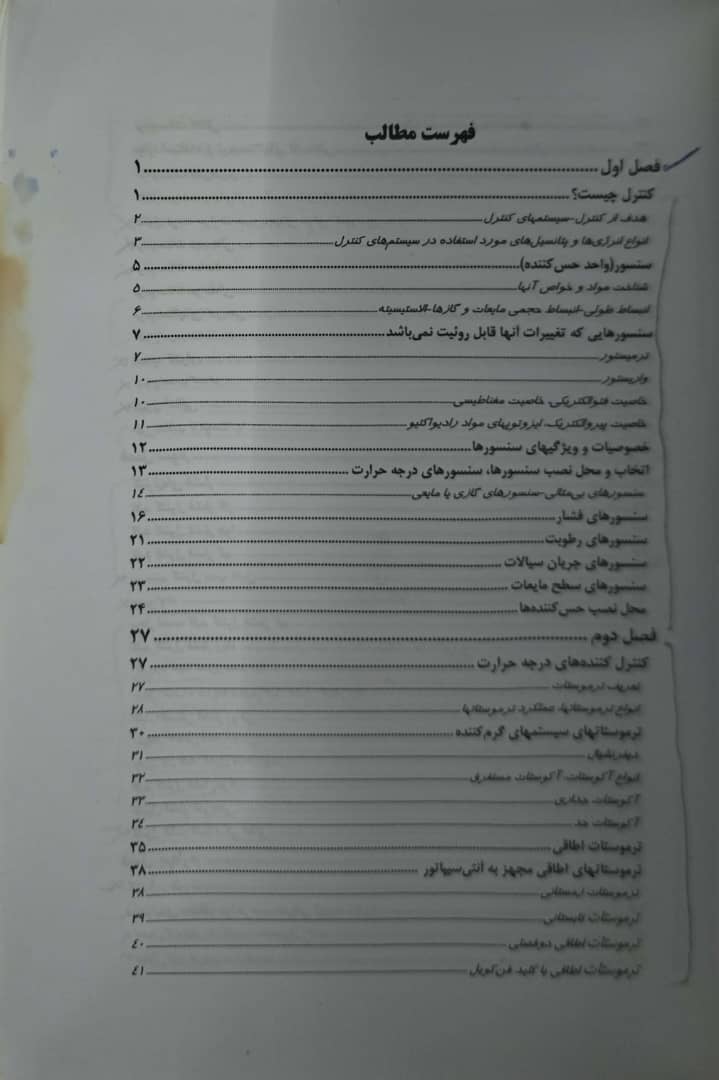 فهرست مطالب
فصل اول ... ۱
کنترل چیست؟ ... ۱
هدف از کنترل-سیستمهای کنترل ... ۲
انواع انرژی‌ها و پتانسیل‌های مورد استفاده در سیستم‌های کنترل ... ۳
سنسور(واحد حس‌کننده) ... ۵
شناخت مواد و خواص آنها ... ۵
انبساط طولی-انبساط حجمی مایعات و گازها-الاستیسیته ... ۶
سنسورهایی که تغییرات آنها قابل روئیت نمی‌باشد ... ۷
ترمیستور ... ۷
واریستور ... ۱۰
خاصیت فتوالکتریکی، خاصیت مغناطیسی ... ۱۰
خاصیت پیروالکتریک، ایزوتوپهای مواد رادیواکتیو ... ۱۱
خصوصیات و ویژگیهای سنسورها ... ۱۲
انتخاب و محل نصب سنسورها، سنسورهای درجه حرارت ... ۱۳
سنسورهای بی‌متالی-سنسورهای گازی یا مایعی ... ۱۴
سنسورهای فشار ... ۱۶
سنسورهای رطوبت ... ۲۱
سنسورهای جریان سیالات ... ۲۲
سنسورهای سطح مایعات ... ۲۳
محل نصب حس‌کننده‌ها ... ۲۴
فصل دوم ... ۲۷
کنترل کننده‌های درجه حرارت ... ۲۷
تعریف ترموستات ... ۲۷
انواع ترموستاتها، عملکرد ترموستاتها ... ۲۸
ترموستاتهای سیستمهای گرم‌کننده ... ۳۰
دیفرنشیال ... ۳۱
انواع آکوستات-آکوستات مستغرق ... ۳۲
آکوستات جداری ... ۳۳
آکوستات حد ... ۳۴
ترموستات اطاقی ... ۳۵
ترموستاتهای اطاقی مجهز به آنتی‌سیپاتور ... ۳۸
ترموستات زمستانی ... ۳۸
ترموستات تابستانی ... ۳۹
ترموستات اطاقی دوفصلی ... ۴۰
ترموستات اطاقی با کلید فن‌کویل ... ۴۱